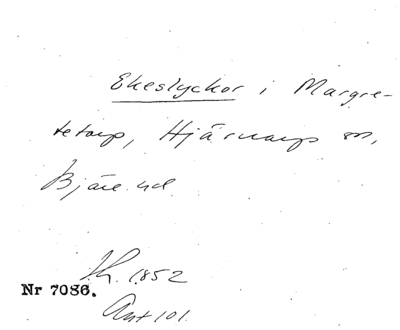 Ekeslyckor i Margre-
tetorp, Hjärnarps sn,
Bjäre hd
Kh. 1852
Nr 7086.
Ant 101